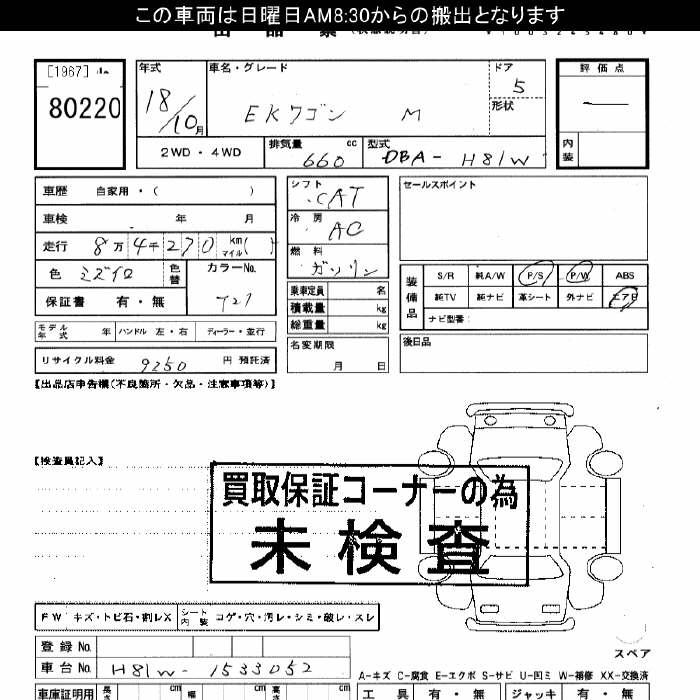 この車両は日曜日AM8:30からの搬出となります
[1967]
80220
年式
18/10月
車名・グレード
EKワゴン M
ドア
5
形状
評価点
内装
2WD・4WD
排気量
660 cc
型式
DBA-H81W
車歴 自家用・( )
車検 年 月
走行 8万4千270km マイル( )
色 ミズイロ
色替
カラーNo.
T27
保証書 有・無
シフト
CAT
冷房
AC
燃料
ガソリン
乗車定員 名
積載量 kg
総重量 kg
セールスポイント
装備品
S/R 純A/W P/S P/W ABS
純TV 純ナビ 革シート 外ナビ エアB
ナビ型番:
モデル年式 年 ハンドル 左・右 ディーラー・並行
リサイクル料金 9250 円 預託済
名変期限
月 日
後日品
【出品店申告欄(不良箇所・欠品・注意事項等)】
【検査員記入】
買取保証コーナーの為
未検査
FW キズ・トビ石・割レX
シート内装 コゲ・穴・汚レ・シミ・破レ・スレ
登録No.
車台No. H81W-1533052
スペア
A-キズ C-腐食 E-エクボ S-サビ U-凹ミ W-補修 XX-交換済
車庫証明用 長さ cm 幅 cm 高さ cm
工具 有・無 ジャッキ 有・無